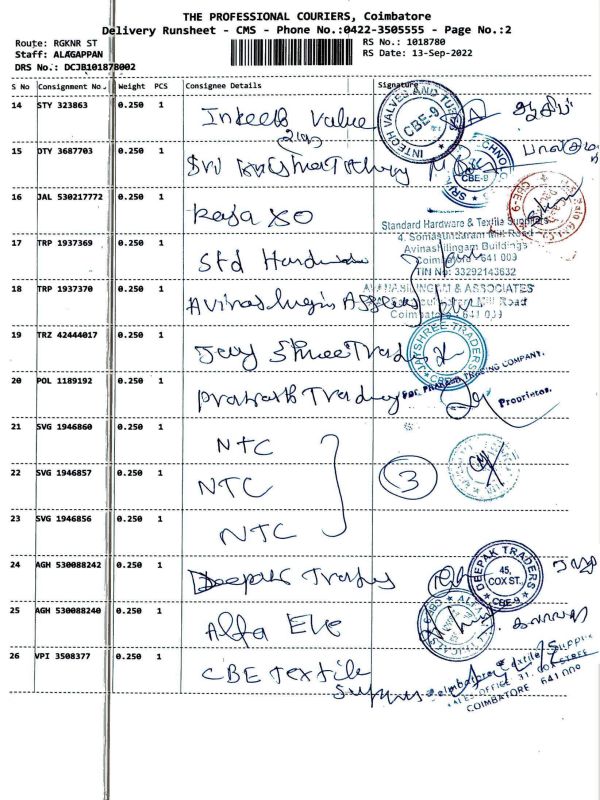 THE PROFESSIONAL COURIERS, Coimbatore
Delivery Runsheet - CMS - Phone No.:0422-3505555 - Page No.:2
Route: RGKNR ST RS No.: 1018780
Staff: ALAGAPPAN RS Date: 13-Sep-2022
DRS No.: DCJB101878002
S No Consignment No. Weight PCS Consignee Details Signature
14 STY 323863 0.250 1 Value
INTECH VALVES AND TUBES CBE-9
15 DTY 3687703 0.250 1 Sri
CBE-9
16 JAL 530217772 0.250 1 Raja
CBE-9
Standard Hardware & Textile Suppliers
4, Somasundaram Mill Road
Avinashilingam Buildings
Coimbatore 641 009
TIN No: 33292143632
17 TRP 1937369 0.250 1 Std Hardware
18 TRP 1937370 0.250 1
AVINASHILINGAM & ASSOCIATES
Mill Road
Coimbatore 641 009
19 TRZ 42444017 0.250 1 Jay Shree Traders
JAYSHREE TRADERS CBE
20 POL 1189192 0.250 1 Prakash Trading
TRADING COMPANY.
Proprietor.
21 SVG 1946860 0.250 1 NTC
22 SVG 1946857 0.250 1 NTC 3
23 SVG 1946856 0.250 1 NTC
24 AGH 530088242 0.250 1 Deepak Traders
DEEPAK TRADERS 45, COX ST., CBE-9
25 AGH 530088240 0.250 1 Alfa Ele
26 VPI 3508377 0.250 1 CBE Textile
Suppliers
Coimbatore Textile Supplix
SALES OFFICE 31, COX STREE
COIMBATORE 641 009